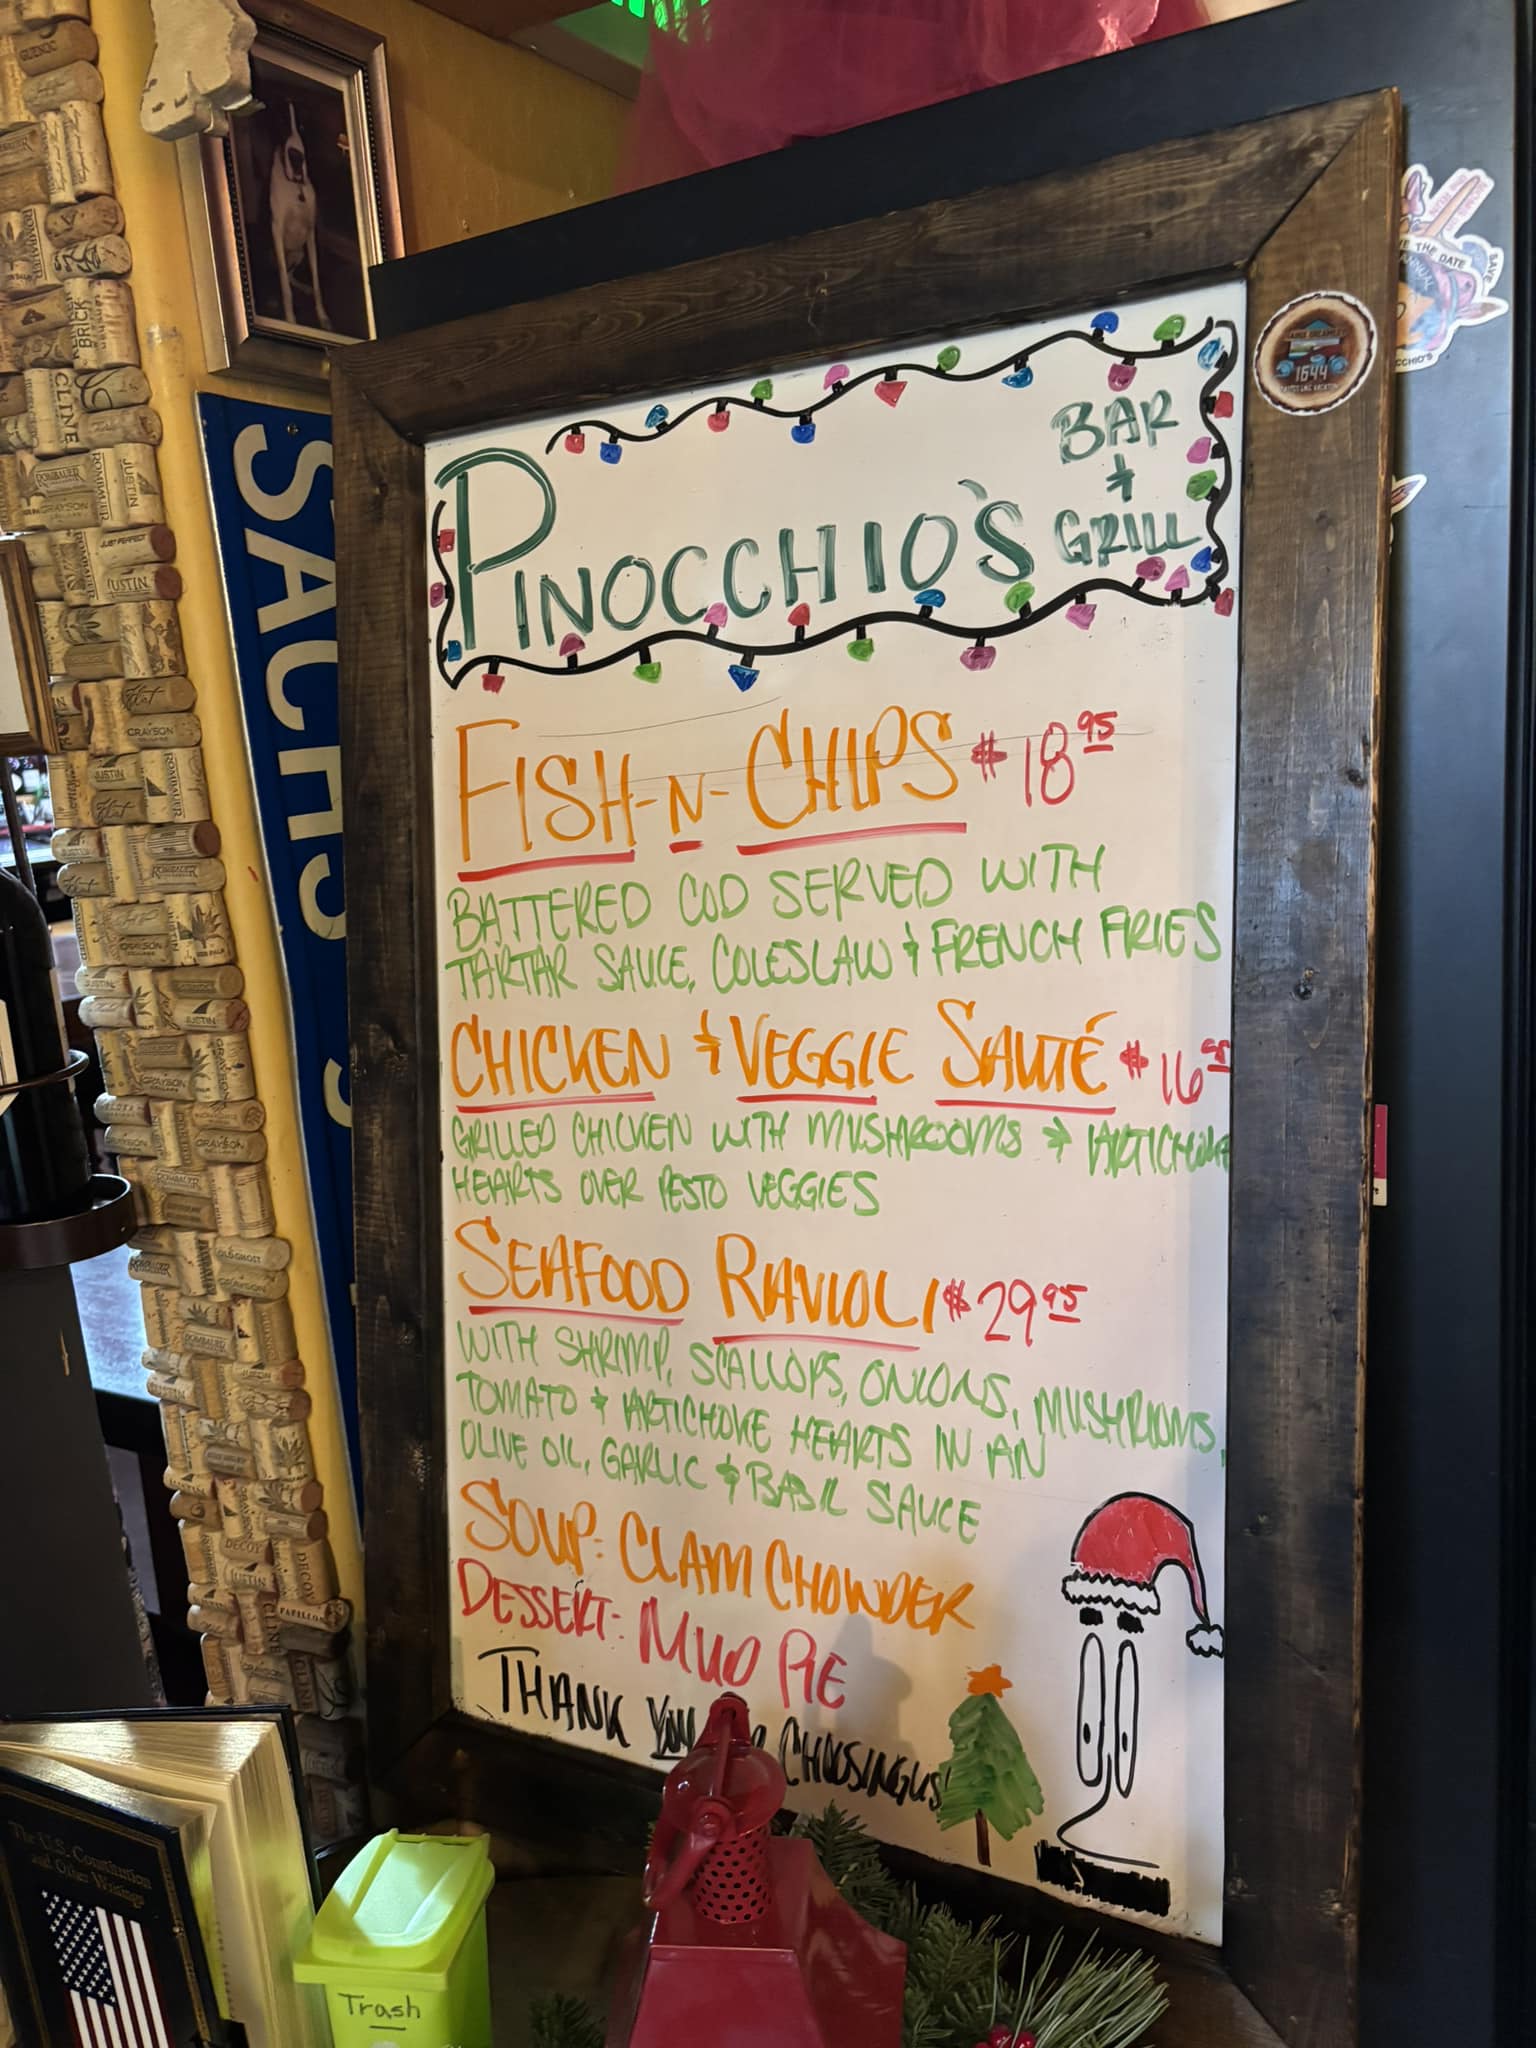 PINOCCHIO'S BAR & GRILL
FISH-N-CHIPS $18.95
BATTERED COD SERVED WITH
TARTAR SAUCE, COLESLAW & FRENCH FRIES
CHICKEN & VEGGIE SAUTÉ $16.95
GRILLED CHICKEN WITH MUSHROOMS & ARTICHOKE
HEARTS OVER PESTO VEGGIES
SEAFOOD RAVIOLI $29.95
WITH SHRIMP, SCALLOPS, ONIONS, MUSHROOMS,
TOMATO & ARTICHOKE HEARTS IN AN
OLIVE OIL, GARLIC & BASIL SAUCE
SOUP: CLAM CHOWDER
DESSERT: MUD PIE
THANK YOU CHOOSING US!
SACHS
1644
THE DATE
SAVE
The U.S. Constitution
and Other Writings
Trash
BRICK
CLINE
ROMBAUER
JUSTIN
GRAYSON
JUST PERFECT
JUSTIN
GRAYSON
JUSTIN
DECOY
PAPILLON